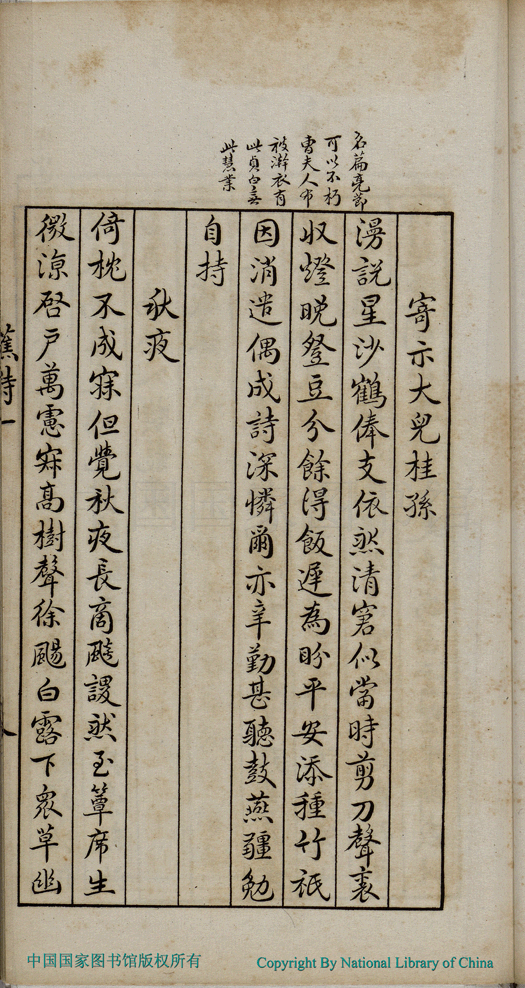 名篇亮節
可以不朽
曹夫人布
被澣衣有
此貞白無
此慧業
寄示大兒桂孫
漫說星沙鶴俸支依然清窘似當時剪刀聲裏
収燈晚登豆分餘得飯遲為盼平安添種竹祇
因消遣偶成詩深憐爾亦辛勤甚聽鼓燕疆勉
自持
秋夜
倚枕不成寐但覺秋夜長商飈謖然至簟席生
微涼啓戶萬慮寂高樹聲徐颺白露下衆草幽
中国国家图书馆版权所有
Copyright By National Library of China